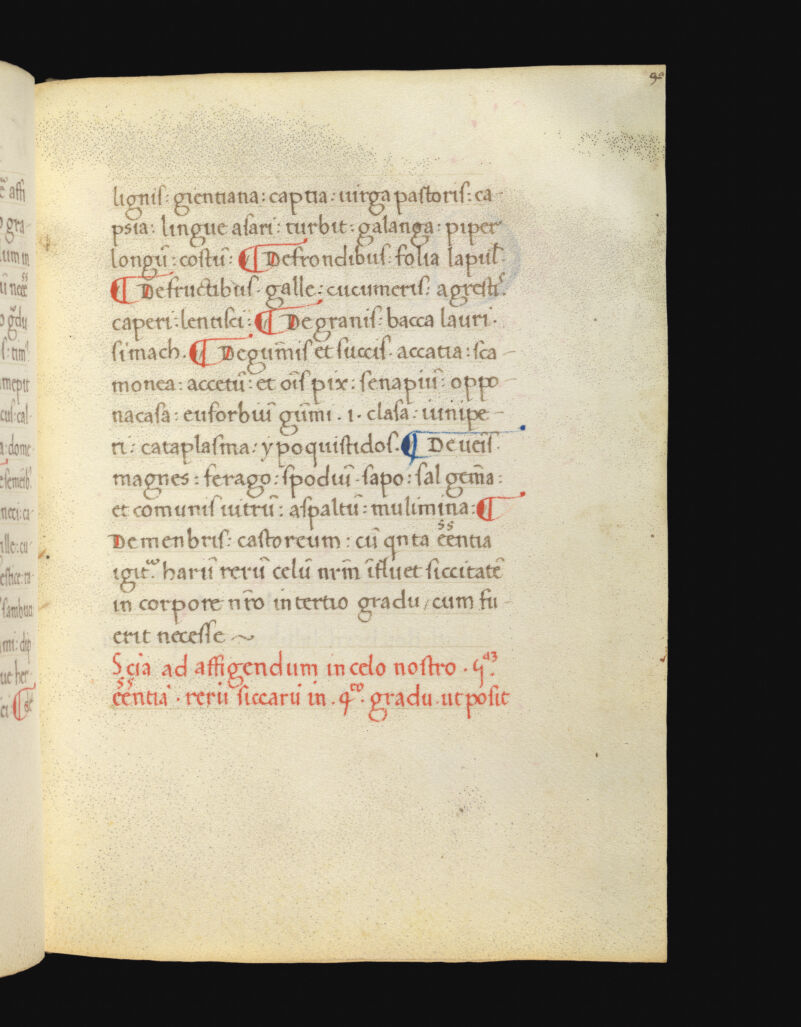 90
lignis: gientiana: captia: uirga pastoris: ca-
psia: lingue asari: turbit: galanga: piper
longū: costū: ¶ De frondibus: folia lapul̄:
¶ De fructibus. galle: cucumeris: agresti:
caperi: lentisci: ¶ De granis: bacca lauri.
simach. ¶ De gum̄is et succis. accatia: sca-
monea: accetū: et ois̄ pix: senapiū: oppo-
nacasa: euforbiū gūmi . i . clasa: iunipe-
ri: cataplasma: ypoquistidos. ¶ De ueis̄.
magnes: ferago: spodiū. sapo: sal gem̄a:
et comunis uitrū: aspaltū: mulimina: ¶
De menbris: castoreum: cū qnta ēēntia
igit. harū rerū celū nrm̄ īfluet siccitatē
in corpore nr̄o in tertio gradu, cum fu-
erit necesse ~
Scia ad affigendum in celo nostro . qᵗᵃ.
ēēntia . rerū siccarū in . qᵗᵒ. gradu . ut posit
ē affi
gra
lum in
ū nec̄
o gdu
mepit
cul cal
a dome
neci: ca
ille: cu
estice: ra
sambuci
ue her